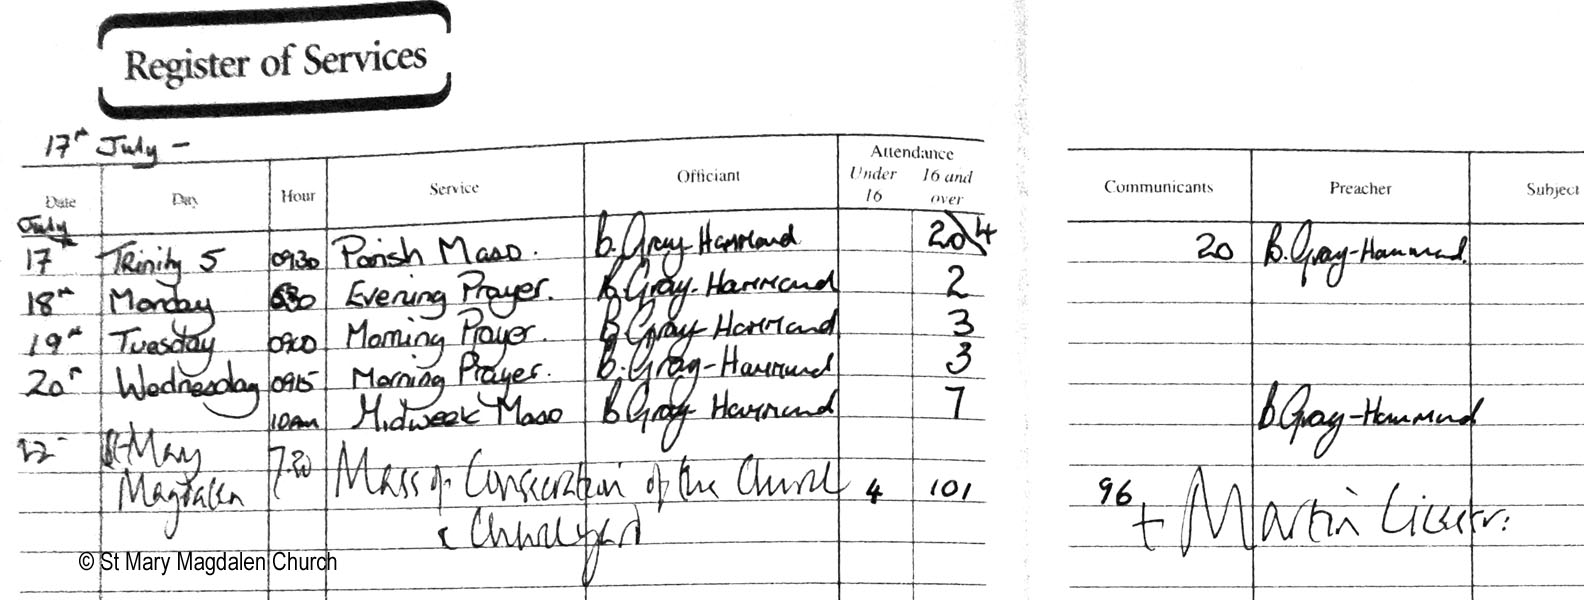 Register of Services
17th July -
Attendance
Date Day Hour Service Officiant Under 16 16 and over Communicants Preacher Subject
July
17th Trinity 5 0930 Parish Mass. B. Gray-Hammond 20 4 20 B. Gray-Hammond.
18th Monday 630 Evening Prayer. B Gray-Hammond 2
19th Tuesday 0900 Morning Prayer. B Gray-Hammond 3
20th Wednesday 0915 Morning Prayer. B. Gray-Hammond 3
10am Midweek Mass B Gray-Hammond 7 B Gray-Hammond
22 St Mary 7.30 Mass of Consecration of the Church 4 101 96 + Martin Cicestr:
Magdalen & Churchyard
© St Mary Magdalen Church